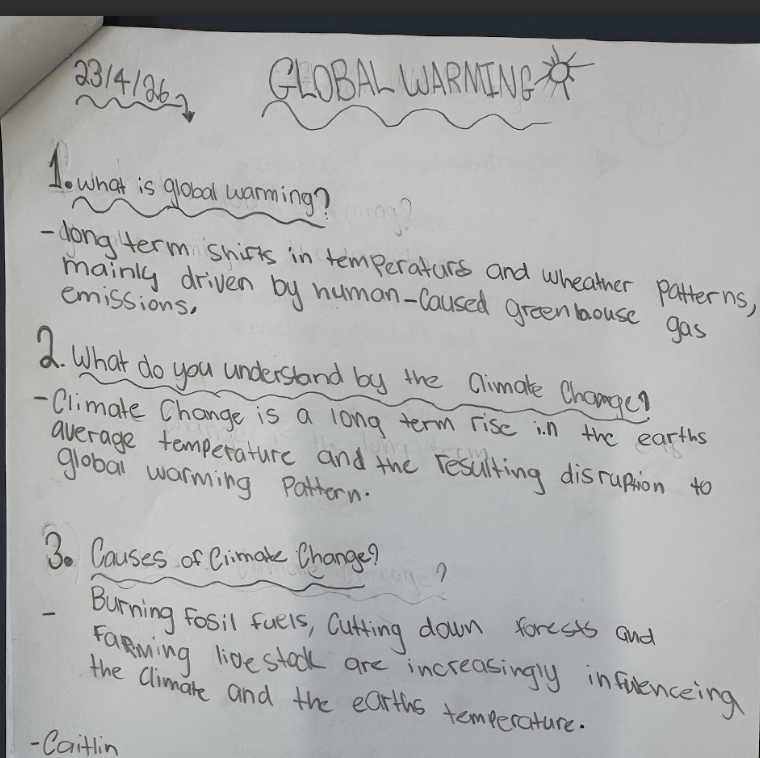 23/4/26
GLOBAL WARMING
1. what is global warming?
- long term shifts in temperaturs and wheather patterns,
mainly driven by human-caused greenhouse gas
emissions.
2. What do you understand by the Climate Change?
- Climate Change is a long term rise in the earths
average temperature and the resulting disruption to
global warming pattern.
3. Causes of Climate Change?
?
- Burning fosil fuels, Cutting down forests and
Farming livestock are increasingly influenceing
the Climate and the earths temperature.
- Caitlin